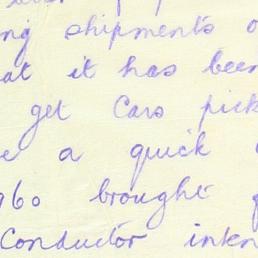 ng shipments o
at it has been
get Cars pick
e a quick
960 brought
Conductor inten